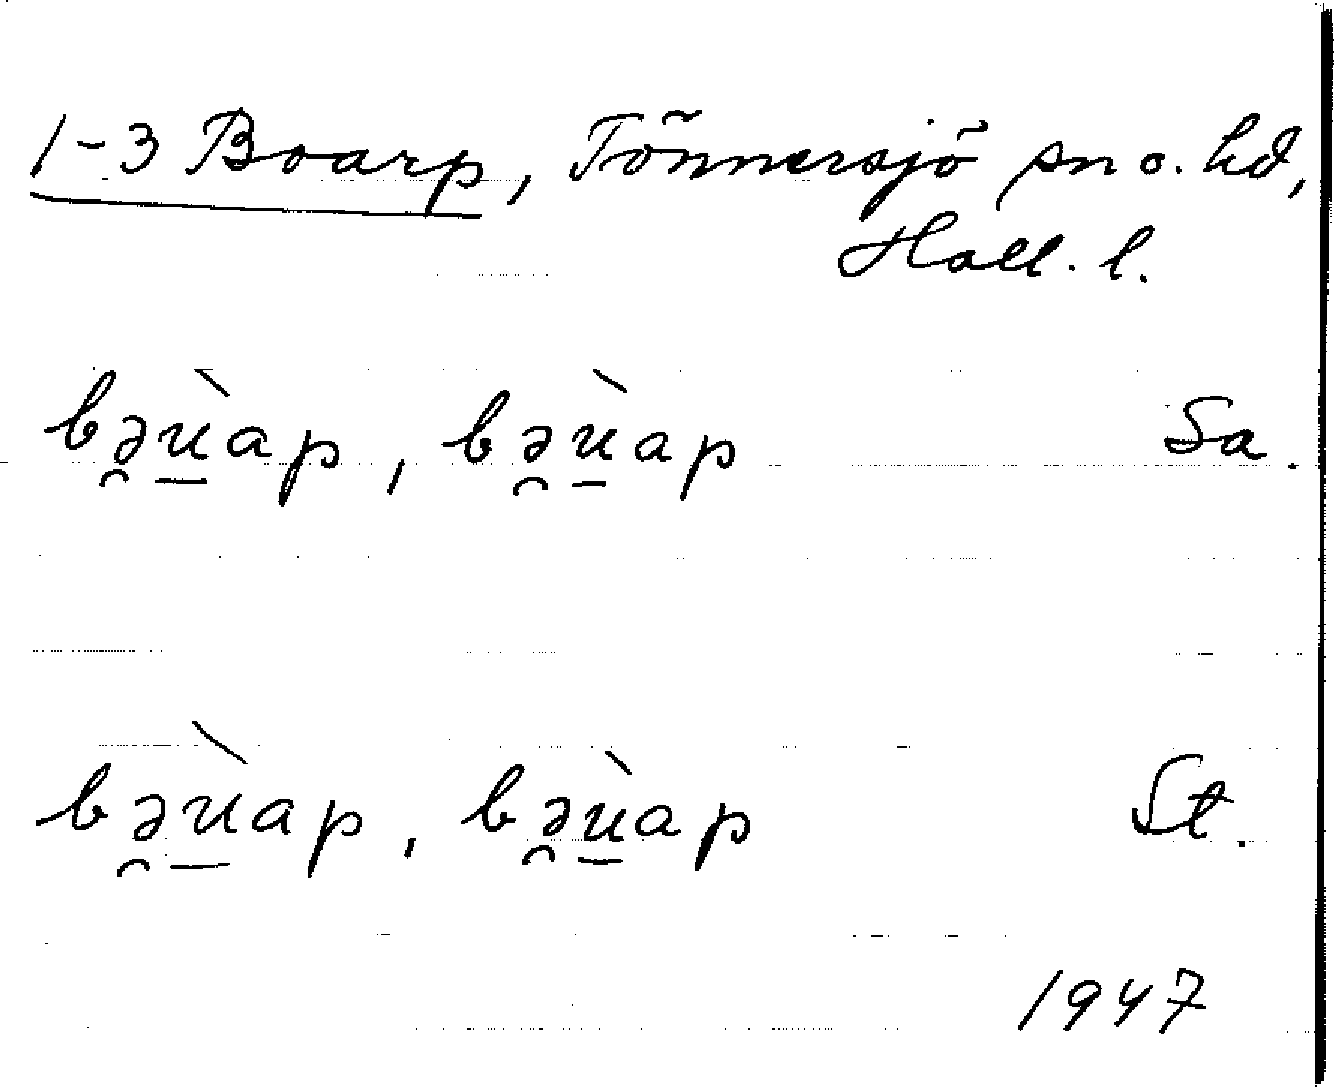 1-3 Boarp, Tönnersjö sn o. hd,
Hall. l.
bə̯ù̲ap, bə̯ù̲ap Sa.
bə̯ù̲ap, bə̯ù̲ap St.
1947